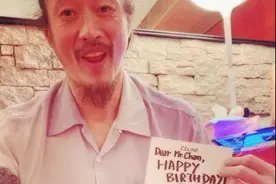 CELINE
Dear Mr Chan,
HAPPY
BIRTHDAY!